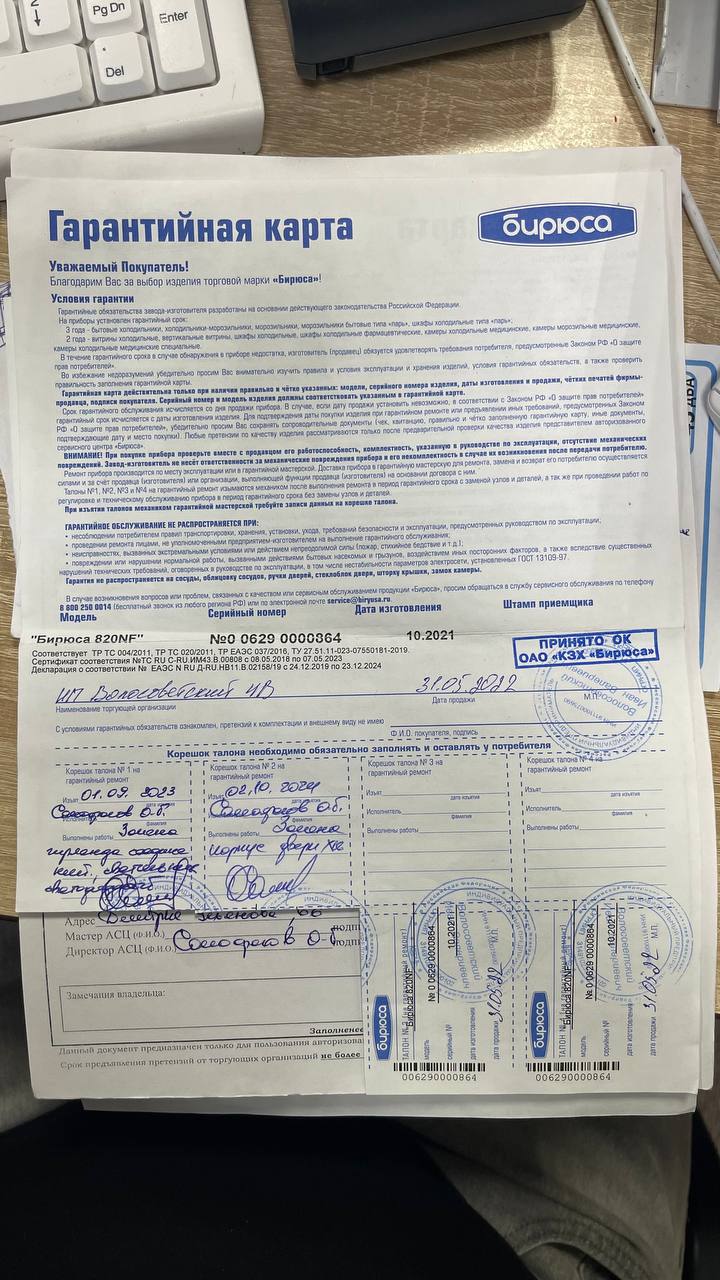 Pg Dn
Enter
Del
Гарантийная карта
бирюса
Уважаемый Покупатель!
Благодарим Вас за выбор изделия торговой марки «Бирюса»!
Условия гарантии
Гарантийные обязательства завода-изготовителя разработаны на основании действующего законодательства Российской Федерации.
На приборы установлен гарантийный срок:
3 года - бытовые холодильники, холодильники-морозильники, морозильники, морозильники бытовые типа «ларь», шкафы холодильные типа «ларь»;
2 года - витрины холодильные, вертикальные витрины, шкафы холодильные, шкафы холодильные фармацевтические, камеры холодильные медицинские, камеры морозильные медицинские,
камеры холодильные медицинские специальные.
В течение гарантийного срока в случае обнаружения в приборе недостатка, изготовитель (продавец) обязуется удовлетворять требования потребителя, предусмотренные Законом РФ «О защите
прав потребителей».
Во избежание недоразумений убедительно просим Вас внимательно изучить правила и условия эксплуатации и хранения изделий, условия гарантийных обязательств, а также проверить
правильность заполнения гарантийной карты.
Гарантийная карта действительна только при наличии правильно и чётко указанных: модели, серийного номера изделия, даты изготовления и продажи, чётких печатей фирмы-
продавца, подписи покупателя. Серийный номер и модель изделия должны соответствовать указанным в гарантийной карте.
Срок гарантийного обслуживания исчисляется со дня продажи прибора. В случае, если дату продажи установить невозможно, в соответствии с Законом РФ «О защите прав потребителей»
гарантийный срок исчисляется с даты изготовления изделия. Для подтверждения даты покупки изделия при гарантийном ремонте или предъявлении иных требований, предусмотренных Законом
РФ «О защите прав потребителей», убедительно просим Вас сохранять сопроводительные документы (чек, квитанцию, правильно и чётко заполненную гарантийную карту, иные документы,
подтверждающие дату и место покупки). Любые претензии по качеству изделия рассматриваются только после предварительной проверки качества изделия представителем авторизованного
сервисного центра «Бирюса».
ВНИМАНИЕ! При покупке прибора проверьте вместе с продавцом его работоспособность, комплектность, указанную в руководстве по эксплуатации, отсутствие механических
повреждений. Завод-изготовитель не несёт ответственности за механические повреждения прибора и его некомплектность в случае их возникновения после передачи потребителю.
Ремонт прибора производится по месту эксплуатации или в гарантийной мастерской. Доставка прибора в гарантийную мастерскую для ремонта, замена и возврат его потребителю осуществляется
силами и за счёт продавца (изготовителя) или организации, выполняющей функции продавца (изготовителя) на основании договора с ним.
Талоны №1, №2, №3 и №4 на гарантийный ремонт изымаются механиком после выполнения ремонта в период гарантийного срока с заменой узлов и деталей, а так же при проведении работ по
регулировке и техническому обслуживанию прибора в период гарантийного срока без замены узлов и деталей.
При изъятии талонов механиком гарантийной мастерской требуйте записи данных на корешке талона.
ГАРАНТИЙНОЕ ОБСЛУЖИВАНИЕ НЕ РАСПРОСТРАНЯЕТСЯ ПРИ:
• несоблюдении потребителем правил транспортировки, хранения, установки, ухода, требований безопасности и эксплуатации, предусмотренных руководством по эксплуатации;
• проведении ремонта лицами, не уполномоченными предприятием-изготовителем на выполнение гарантийного обслуживания;
• неисправностях, вызванных экстремальными условиями или действием непреодолимой силы (пожар, стихийное бедствие и т.д.);
• повреждении или нарушении нормальной работы, вызванными действиями бытовых насекомых и грызунов, воздействием иных посторонних факторов, а также вследствие существенных
нарушений технических требований, оговоренных в руководстве по эксплуатации, в том числе нестабильности параметров электросети, установленных ГОСТ 13109-97.
Гарантия не распространяется на сосуды, облицовку сосудов, ручки дверей, стеклоблок двери, шторку крышки, замок камеры.
В случае возникновения вопросов или проблем, связанных с качеством или сервисным обслуживанием продукции «Бирюса», просим обращаться в службу сервисного обслуживания по телефону
8 800 250 0014 (бесплатный звонок из любого региона РФ) или по электронной почте service@biryusa.ru
Модель Серийный номер Дата изготовления Штамп приемщика
"Бирюса 820NF" №0 0629 0000864 10.2021
ПРИНЯТО ОК
ОАО «КЗХ «Бирюса»
Соответствует ТР ТС 004/2011, ТР ТС 020/2011, ТР ЕАЭС 037/2016, ТУ 27.51.11-023-07550181-2019.
Сертификат соответствия №ТС RU C-RU.ИМ43.В.00808 с 08.05.2018 по 07.05.2023
Декларация о соответствии № ЕАЭС N RU Д-RU.НВ11.В.02158/19 с 24.12.2019 по 23.12.2024
31.05.2022
Наименование торгующей организации Дата продажи М.П.
С условиями гарантии ознакомлен, претензий к комплектации и внешнему виду не имею
Ф.И.О. покупателя, подпись
Корешок талона необходимо обязательно заполнять и оставлять у потребителя
Корешок талона № 1 на
гарантийный ремонт
Изъят 01.09.2023
фамилия
Выполнены работы Замена
Корешок талона № 2 на
гарантийный ремонт
Изъят 02.10.2024
фамилия
Выполнены работы Замена
корпус двери ХК
Корешок талона № 3 на
гарантийный ремонт
Изъят
дата изъятия
Исполнитель
фамилия
Выполнены работы
Корешок талона № 4 на
гарантийный ремонт
Изъят
дата изъятия
Исполнитель
фамилия
Выполнены работы
Адрес
Мастер АСЦ (Ф.И.О.)
Директор АСЦ (Ф.И.О.)
Замечания владельца:
Заполнение
Данный документ предназначен только для пользования авторизова
Срок предъявления претензий от торгующих организаций не более
бирюса
ТАЛОН № 3 (на гарантийный ремонт)
модель Бирюса 820NF
серийный № № 0 0629 0000864
дата изготовления 10.2021
дата продажи 31.05.22 М.П.
006290000864
бирюса
модель Бирюса 820NF
серийный № № 0 0629 0000864
дата изготовления 10.2021
дата продажи 31.05.22 М.П.
006290000864